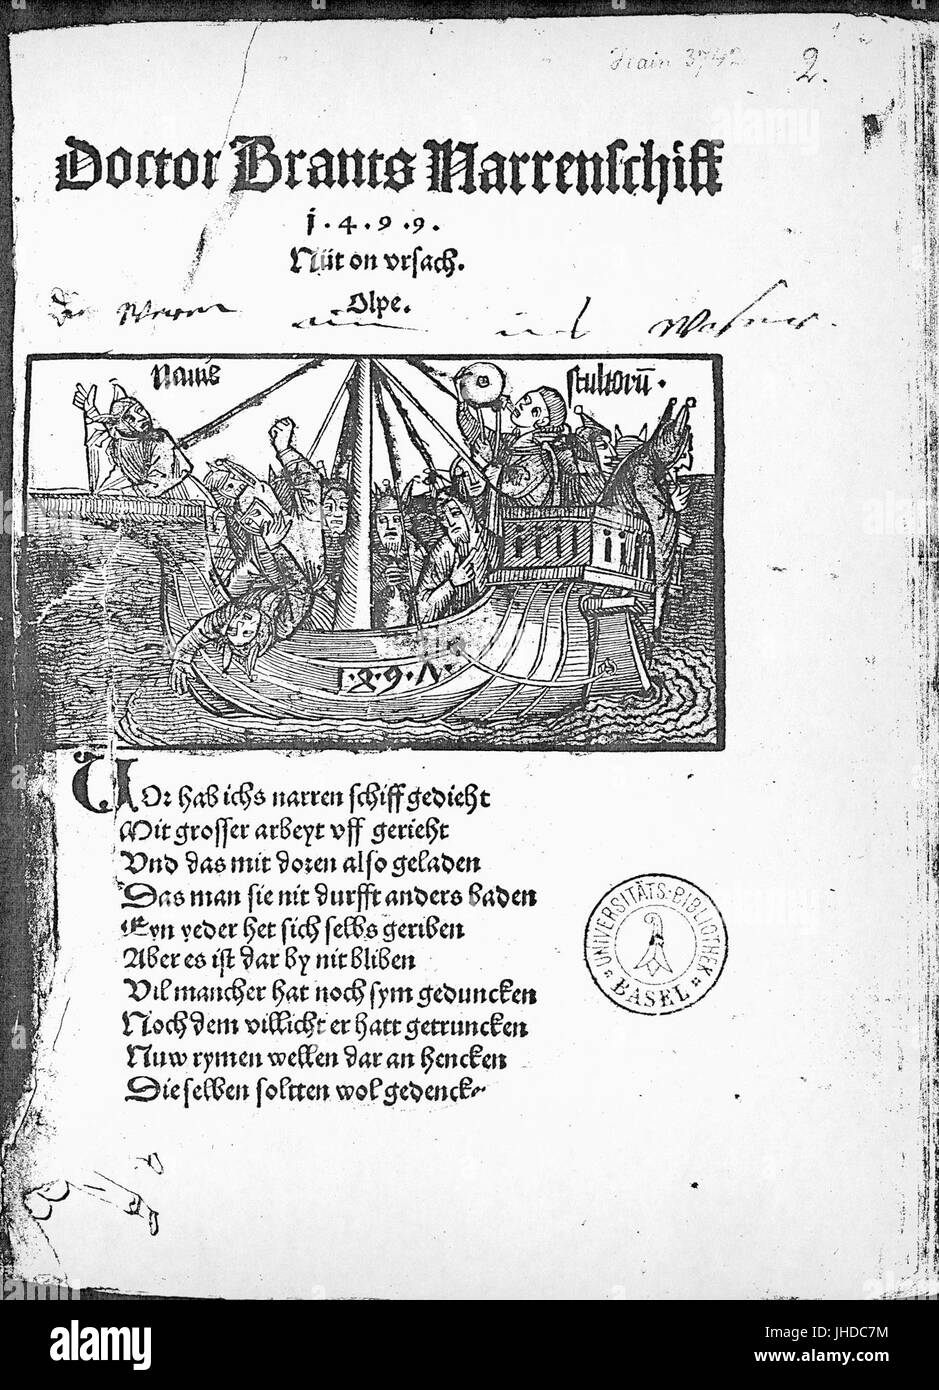 Hain 3742 2.
Doctor Brants Narrenschiff
1·4·9·9·
Nüt on vrsach.
Olpe.
Nauis stultorū·
1·4·9·Λ·
UOr hab ichs narren schiff gedicht
Mit grosser arbeyt vff gericht
Vnd das mit doren also geladen
Das man sie nit durfft anders baden
Eyn yeder het sich selbs geriben
Aber es ist dar by nit bliben
Vil mancher hat noch sym geduncken
Noch dem villicht er hatt getruncken
Nuw rymen wellen dar an hencken
Die selben soltten wol gedencken
UNIVERSITÄTS-BIBLIOTHEK
BASEL
alamy stock photo
JHDC7M
www.alamy.com